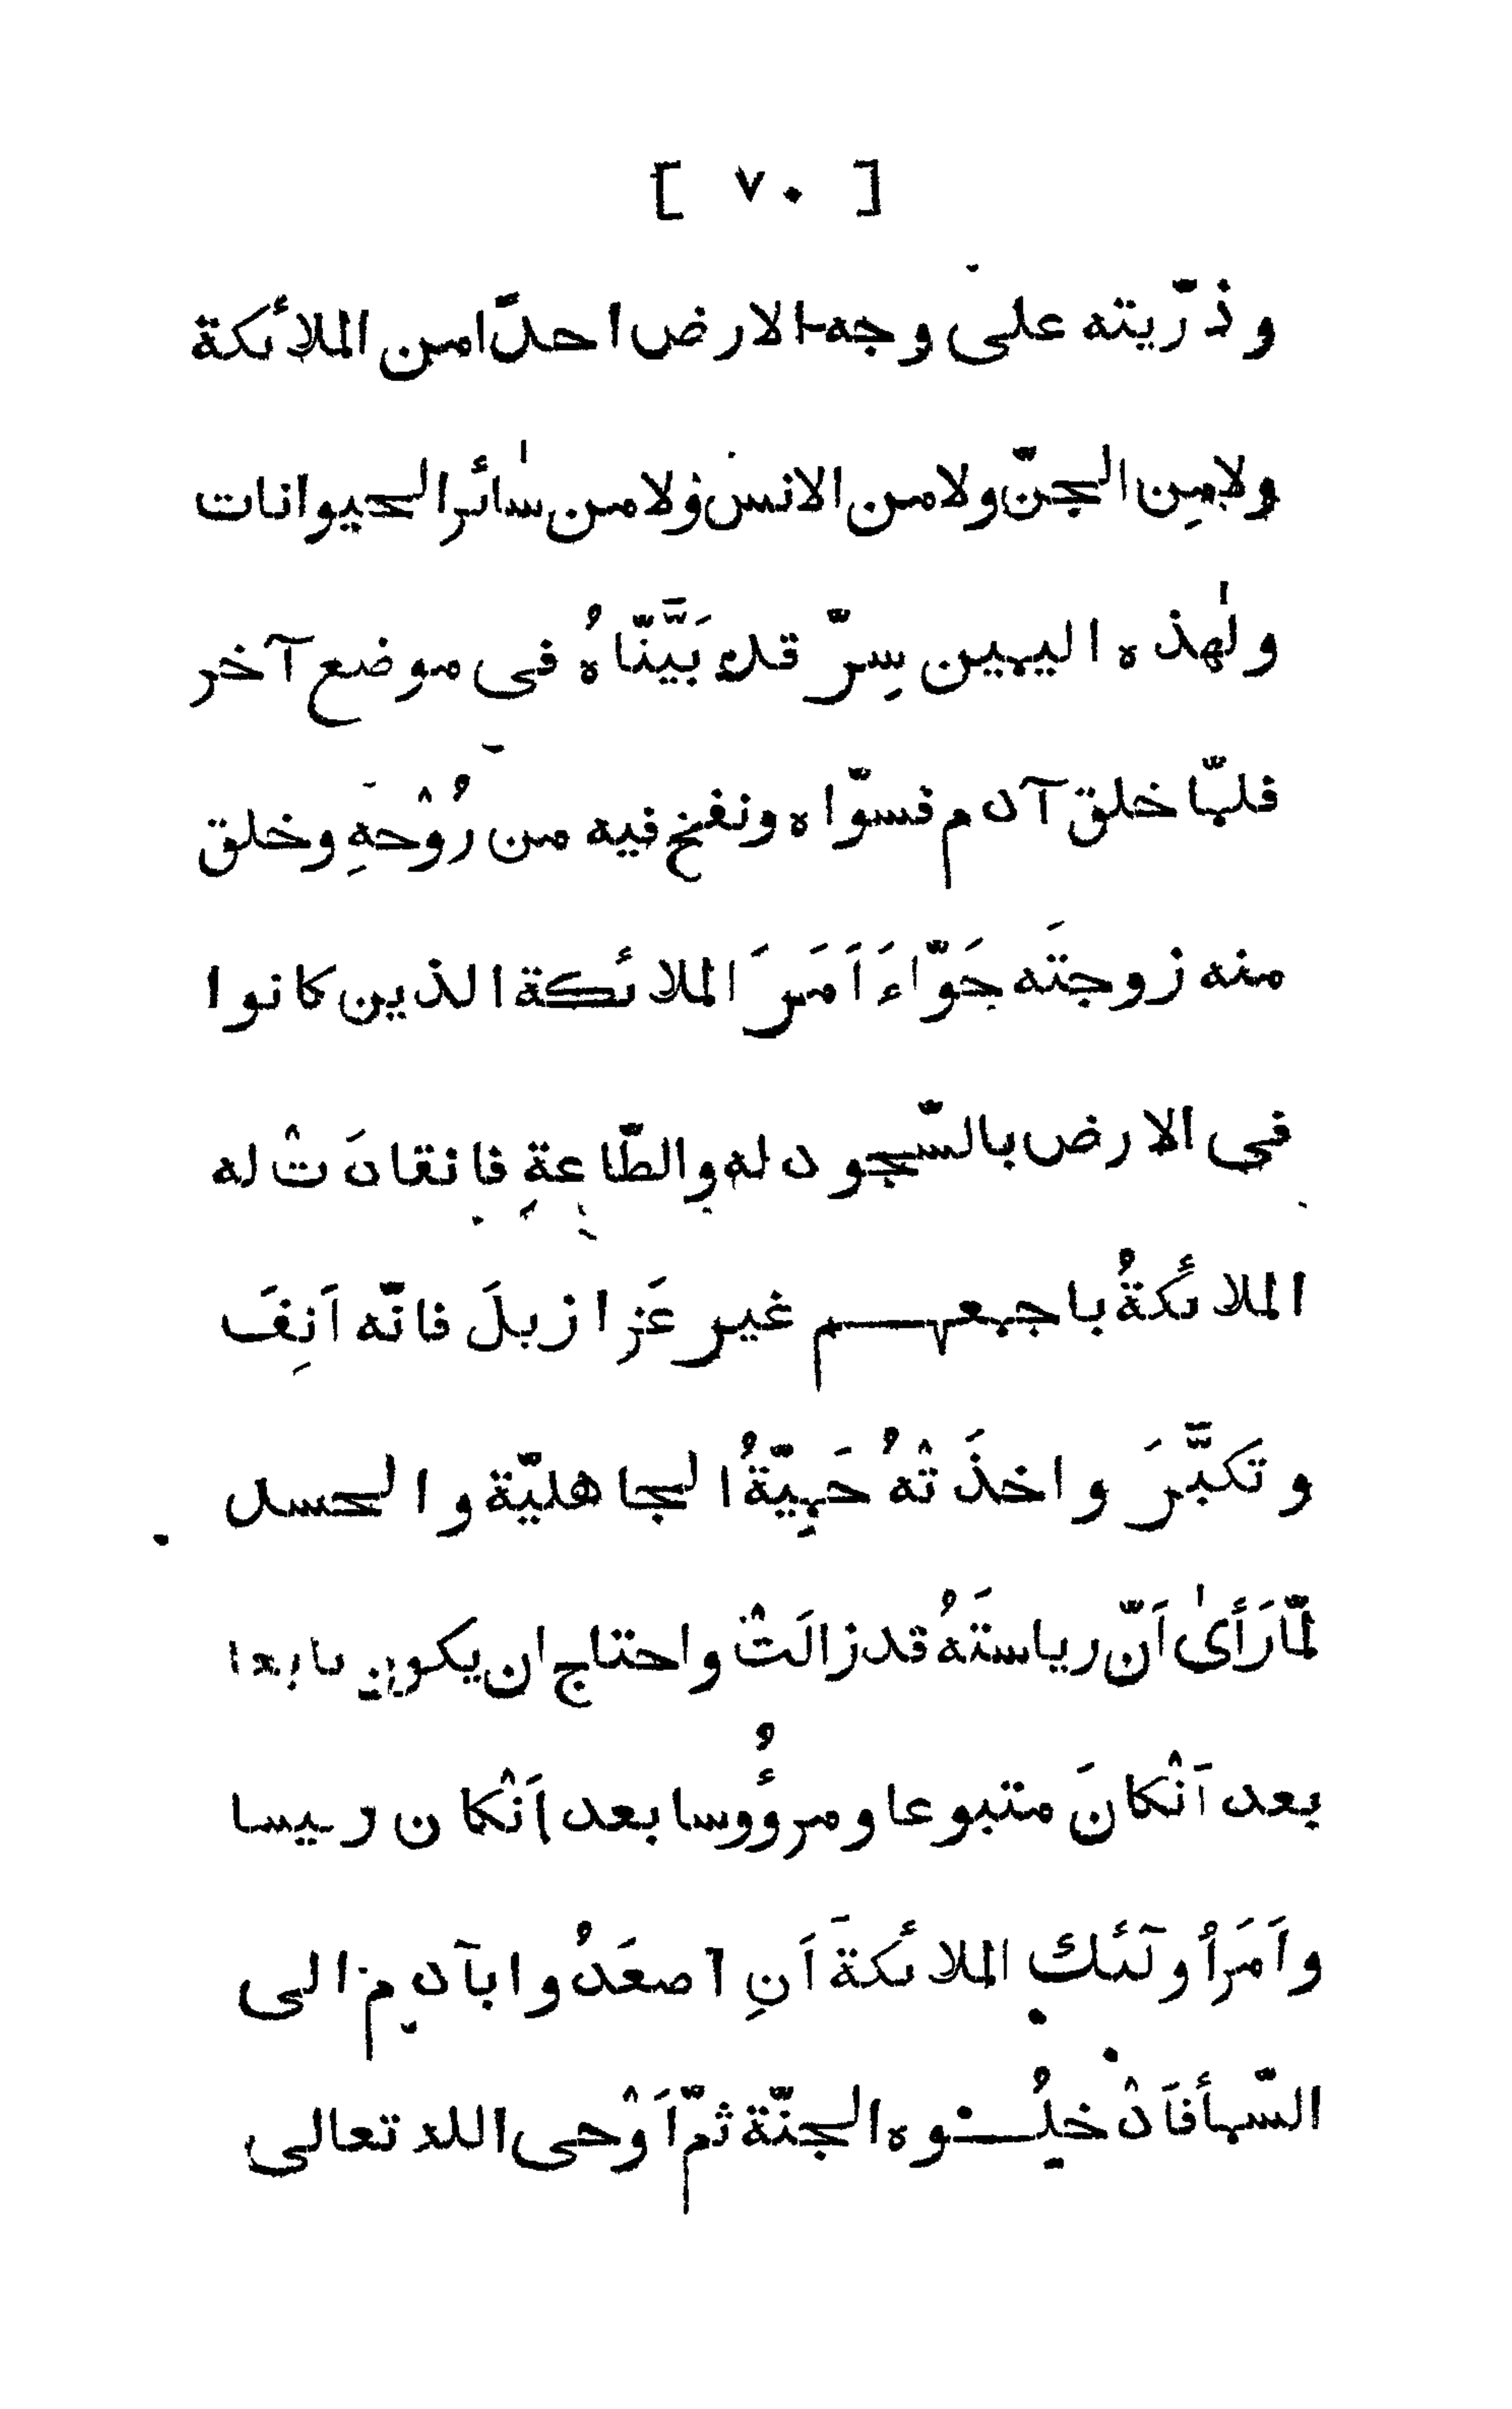 [ ٧٠ ]
وذرّيته على وجه الارض احدًّا من الملائكة
ولا مِن الجنّ ولا من الانس ولا من سٰائر الحيوانات
ولٰهذه اليمين سِرّ قد بَيَّنّاهُ فى موضع آخر
فلمّا خلق آدم فسوّاه ونفخ فيه من رُوْحهِ وخلق
منه زوجتَه حَوّاءَ اَمَرَ الملائكة الذين كانوا
فى الارض بالسّجود له والطّاعةِ فانقادَتْ له
الملائكةُ باجمعهم غير عَزازيلَ فانّه اَنِفَ
وتكبَّرَ واخذَتْهُ حَمِيّةُ الجاهليّة والحسد
لمّا رَأىٰ اَنّ رياستَهُ قد زالَتْ واحتاج ان يكون تابعا
بعد اَنْ كانَ متبوعا ومرؤُوسا بعد اَنْ كان رئيسا
واَمَرَ اُولٓئك الملائكةَ اَنِ اصعَدُوا بآدم الى
السّمأ فاَدْخِلُوه الجنّة ثمّ اَوْحى الله تعالى